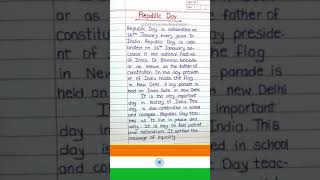 Republic Day
Republic Day is celebrated on
26th January every year in
India. Republic Day is cele-
brated on 26th January bec-
ause it the national Festival
of India. Dr. Bhimrao Ambedk-
ar as known as the father of
constitution. On this day presid-
ent of India hoists the flag
in New Delhi. A big parade is
held on India Gate in new Delhi
It is the very important
day in history of India. This
day is also celebrated in school
and colleges. Republic Day teac-
hes us to live in peace and
unity. It is day to feel patriot
and nationalism. It spread the
message of equality.